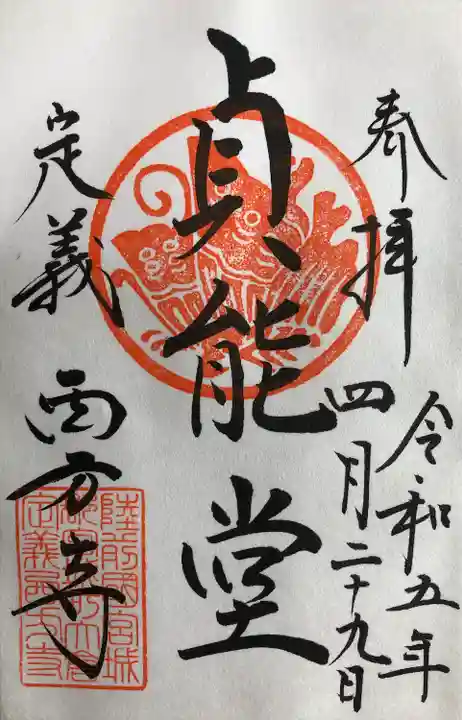 奉拝
令和五年
四月二十九日
貞能堂
定義
西方寺
陸前國宮城
定義西方寺